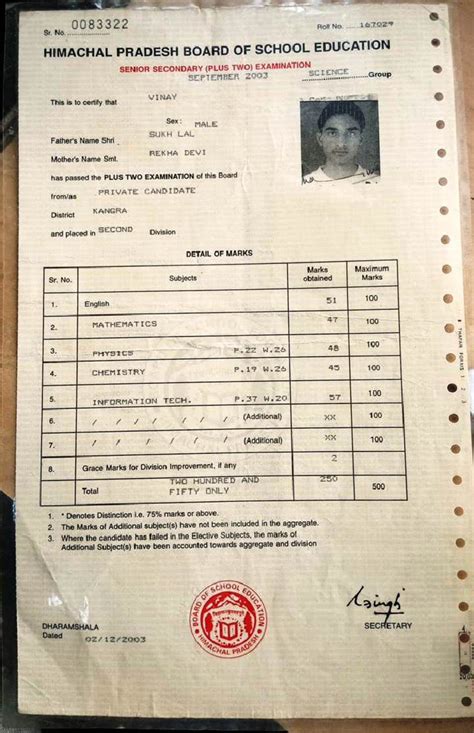 Sr. No. 0083322
Roll No. 167029
HIMACHAL PRADESH BOARD OF SCHOOL EDUCATION
SENIOR SECONDARY (PLUS TWO) EXAMINATION
SEPTEMBER 2003
SCIENCE Group
This is to certify that VINAY
Sex : MALE
Father's Name Shri SUKH LAL
Mother's Name Smt. REKHA DEVI
has passed the PLUS TWO EXAMINATION of this Board
from/as PRIVATE CANDIDATE
District KANGRA
and placed in SECOND Division
DETAIL OF MARKS
Sr. No. Subjects Marks obtained Maximum Marks
1. English 51 100
2. MATHEMATICS 47 100
3. PHYSICS P.22 W.26 48 100
4. CHEMISTRY P.19 W.26 45 100
5. INFORMATION TECH. P.37 W.20 57 100
6. / / / / / / / / (Additional) XX 100
7. / / / / / / / / (Additional) XX 100
8. Grace Marks for Division Improvement, if any 2
Total TWO HUNDRED AND FIFTY ONLY 250 500
1. * Denotes Distinction i.e. 75% marks or above.
2. The Marks of Additional subject(s) have not been included in the aggregate.
3. Where the candidate has failed in the Elective Subjects, the marks of
Additional Subject(s) have been accounted towards aggregate and division
BOARD OF SCHOOL EDUCATION
HIMACHAL PRADESH
DHARAMSHALA
Dated 02/12/2003
SECRETARY